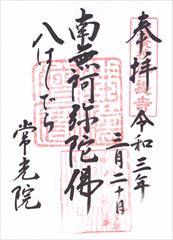 奉拝
令和三年
三月二十日
南無阿弥陀佛
八けしでら
常光院